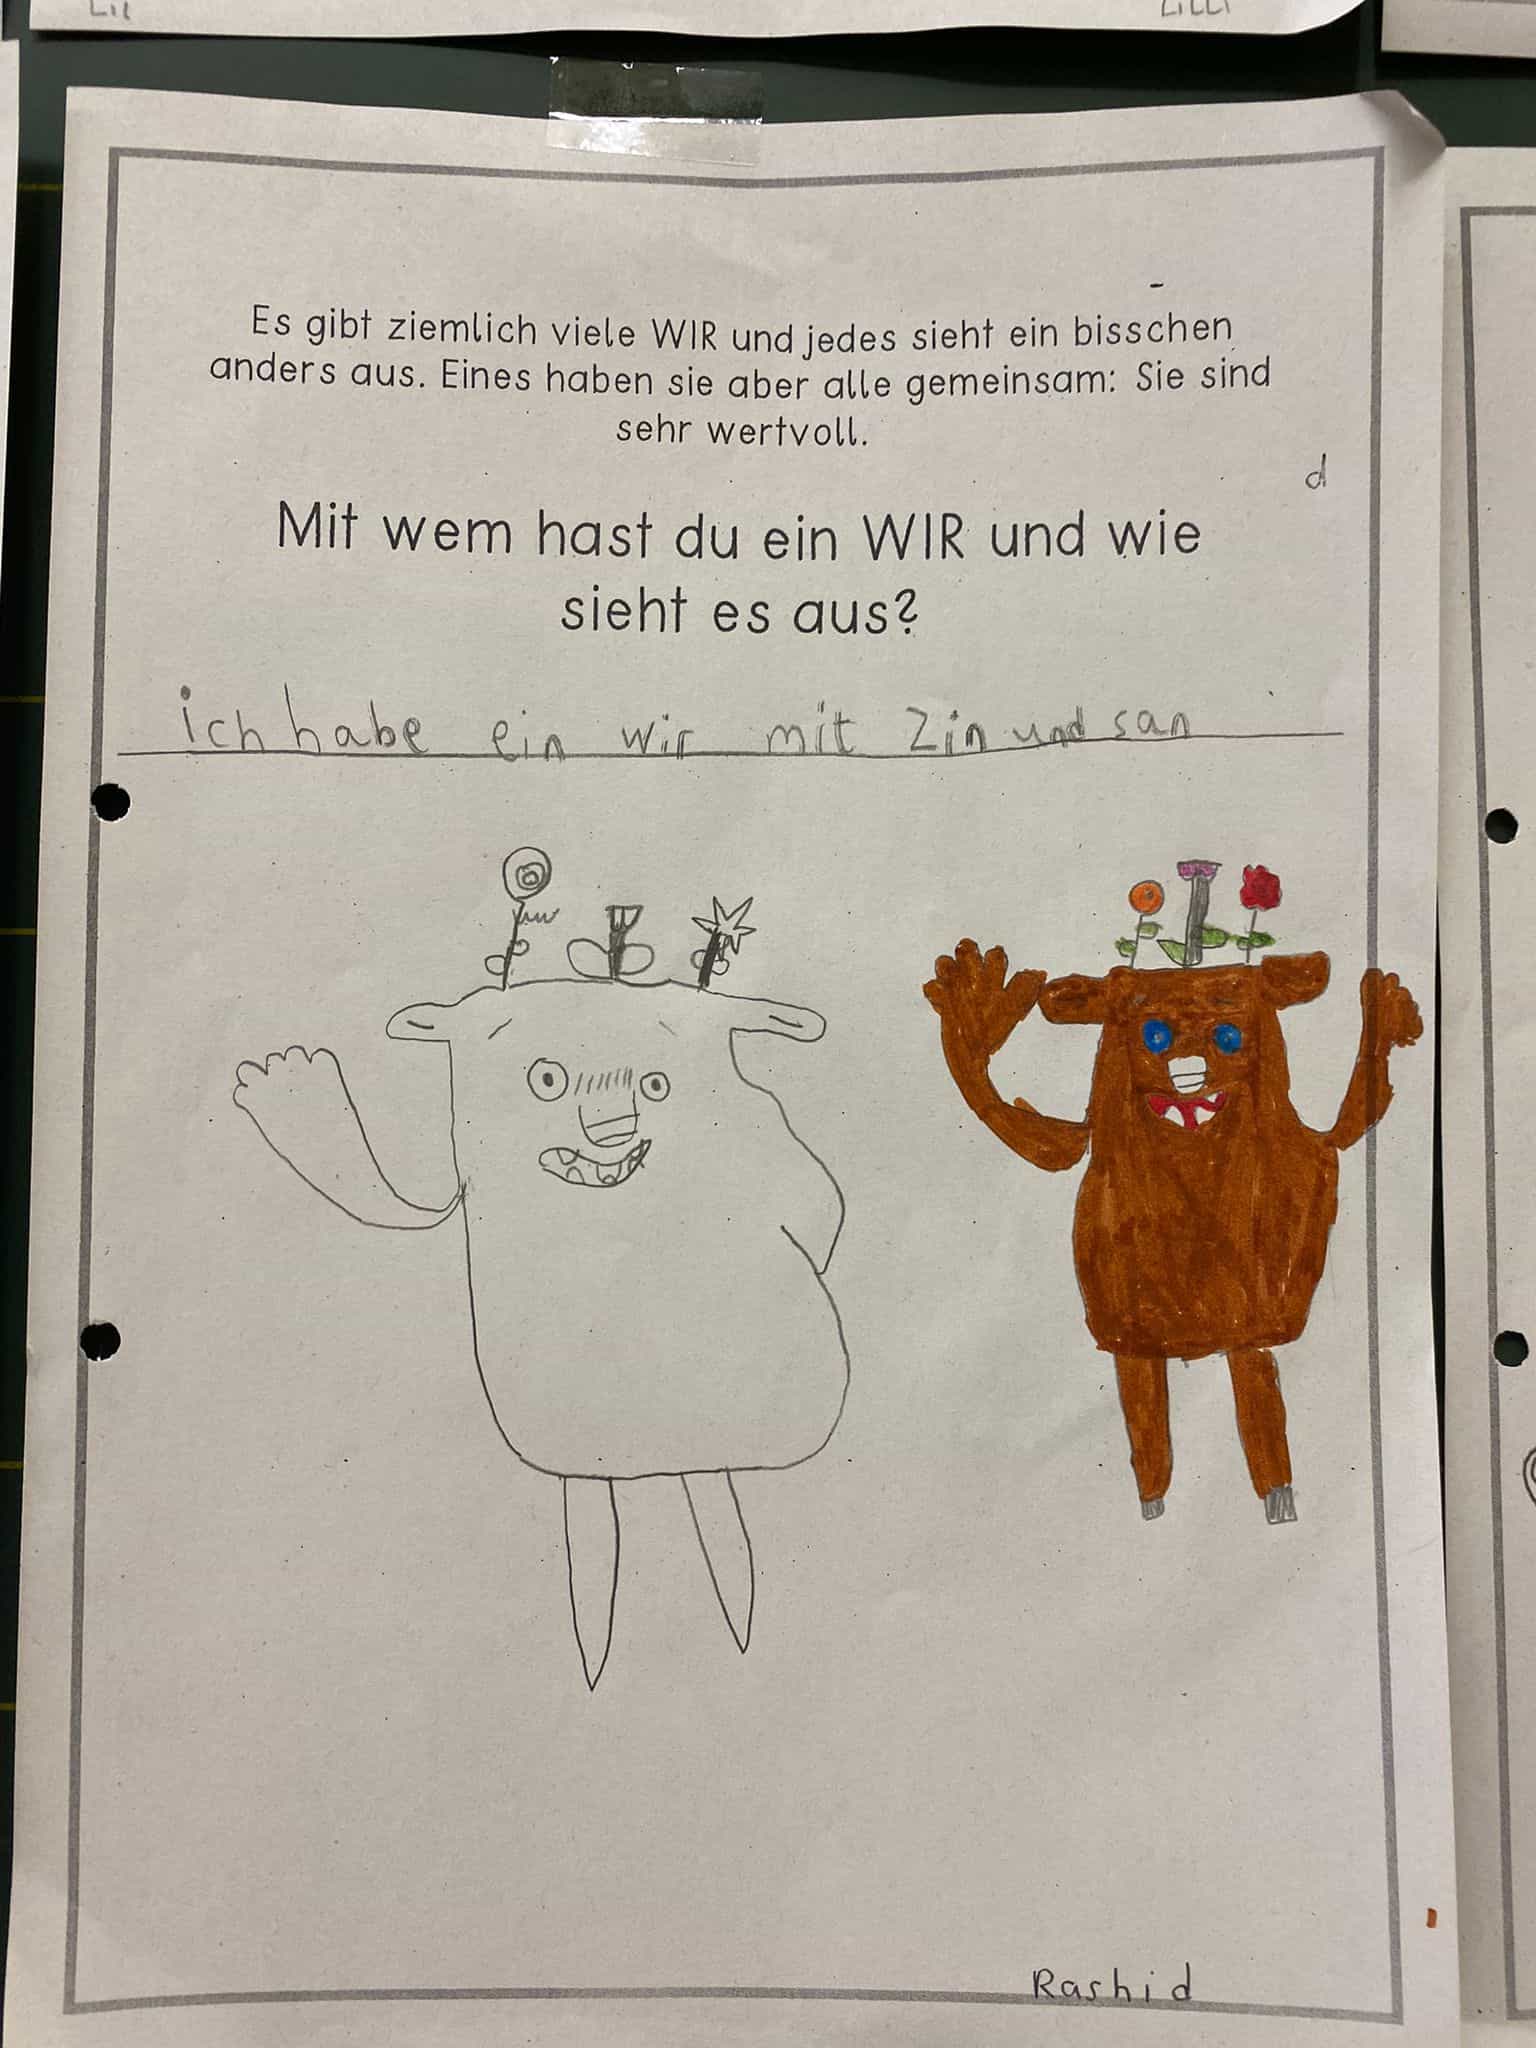 LILLI
Es gibt ziemlich viele WIR und jedes sieht ein bisschen
anders aus. Eines haben sie aber alle gemeinsam: Sie sind
sehr wertvoll.
d
Mit wem hast du ein WIR und wie
sieht es aus?
ich habe ein wir mit Zin und san
Rashid